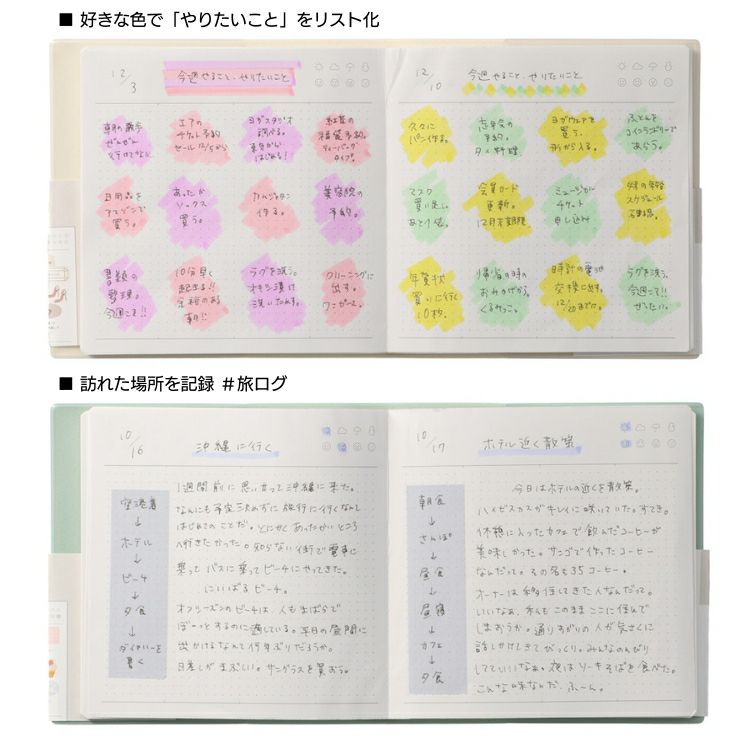 ■ 好きな色で「やりたいこと」をリスト化
12/3
今週やること、やりたいこと
朝の散歩
ぜんぜん
エアの
チケット予約
セール12/5から
ヨガスタジオ
調べる。
はじめる!
紅葉の
日用品を
アマゾンで
買う。
あったか
ソックス
買う。
作る。
美容院の
予約。
書類の
整理。
今週こそ!!
10分早く
起きる!!
余裕のある
朝!!
ラグを洗う。
オキシ漬け
洗いたおす。
クリーニングに
出す。
ワンピース。
12/10
今週やること、やりたいこと
久々に
パン作る。
忘年会の
予約。
タイ料理
ヨガウェアを
買う。
形から入る。
ふとんを
コインランドリーで
あらう。
マスク
買い足し。
あと1袋。
会員カード
更新。
12月末期限
ミュージカル
チケット
申し込み
スケジュール
確認。
年賀状
買いに行く
10枚。
帰省の時の
おみやげかう。
くるみっこ。
時計の電池
交換に出す。
12/20までに。
ラグを洗う。
今週こそ!!
ぜったい。
■ 訪れた場所を記録 #旅ログ
10/16
沖縄に行く
空港着
↓
ホテル
↓
ビーチ
↓
夕食
↓
ダイアリーを
書く
1週間前に思い立って沖縄に来た。
なんにも予定決めずに旅行に行くなんて
はじめてのことだ。とにかくあったかいところ
へ行きたかった。知らない街で電車に
乗ってバスに乗ってビーチにやってきた。
にいばるビーチ。
オフシーズンのビーチは、人もまばらで
ぼーっとするのに適している。平日の昼間に
出かけるなんて何年ぶりだろうか。
日差しがまぶしい。サングラスを買おう。
10/17
ホテル近く散策
朝食
↓
さんぽ
↓
昼食
↓
昼寝
↓
カフェ
↓
夕食
今日はホテルの近くを散策。
ハイビスカスがキレイに咲いていた。すてき。
休憩に入ったカフェで飲んだコーヒーが
美味しかった。サンゴで作ったコーヒー
なんだって。その名も35コーヒー。
オーナーは移住してきた人なんだって。
いいなぁ、私もこのままここに住んで
しまおうか。通りすがりの人が気さくに
話しかけてきてびっくり。みんなのんびり
していていいなぁ。夜はソーキそばを食べた。
こんな味なんだ、ふーん。